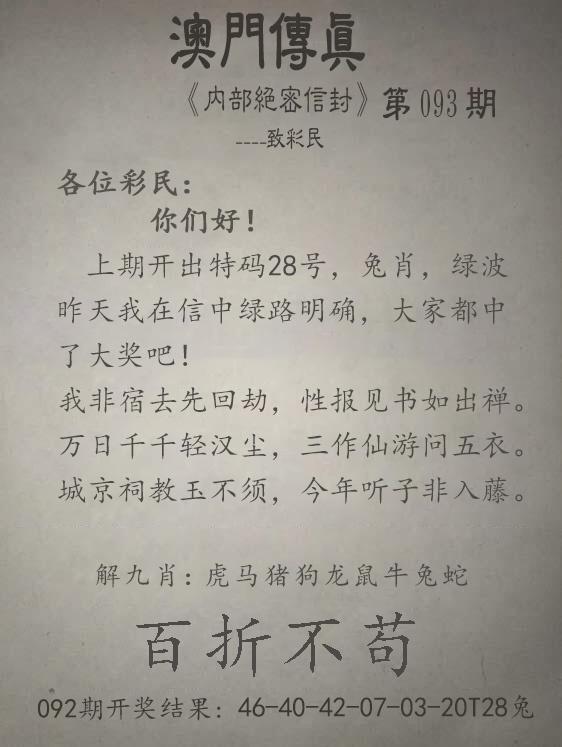 澳門傳眞
《内部絕密信封》第093期
----致彩民
各位彩民：
你们好！
上期开出特码28号，兔肖，绿波
昨天我在信中绿路明确，大家都中
了大奖吧！
我非宿去先回劫，性报见书如出禅。
万日千千轻汉尘，三作仙游问五衣。
城京祠教玉不须，今年听子非入藤。
解九肖：虎马猪狗龙鼠牛兔蛇
百折不苟
092期开奖结果：46-40-42-07-03-20T28兔